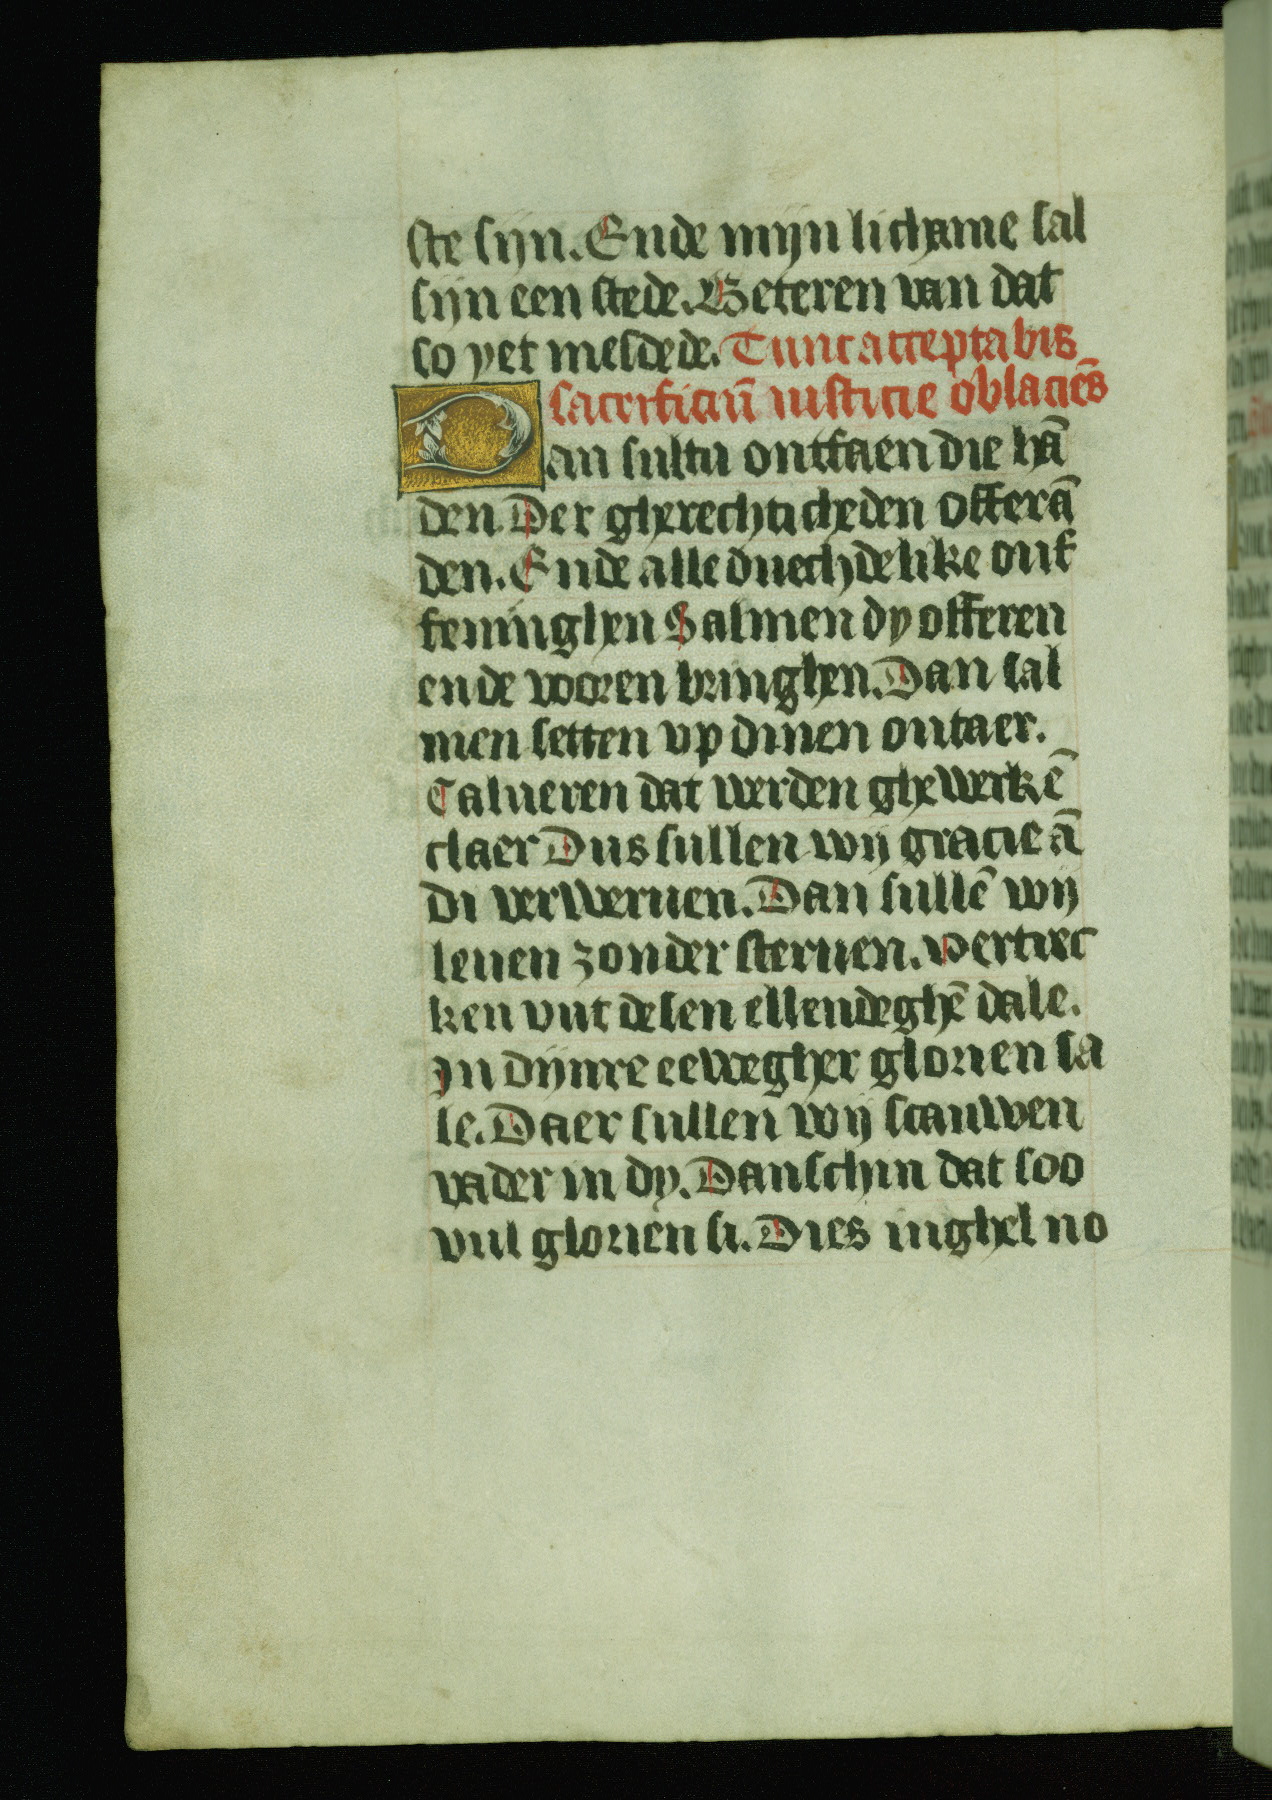 ste sijn. Ende mijn lichame sal
sijn een stede. Beteren van dat
so yet mesdede. Tunc acceptabis
sacrificiū iusticie oblaciēs
Dan sultu ontfaen die hā
den. Der gherechticheden offerā
den. Ende alle duechdelike out
feninghen Salmen dy offeren
ende vooren bringhen. Dan sal
men setten vp dinen outaer.
Calueren dat werden ghewerkē
claer Dus sullen wij gracie ā
di verweruen. Dan sullē wij
leuen zonder steruen. Vertrec
ken vut desen ellendeghē dale.
In dijnre eewegher glorien sa
le. Daer sullen wij scauwen
vader in dy. Danschin dat soo
vul glorien si. Dies inghel no